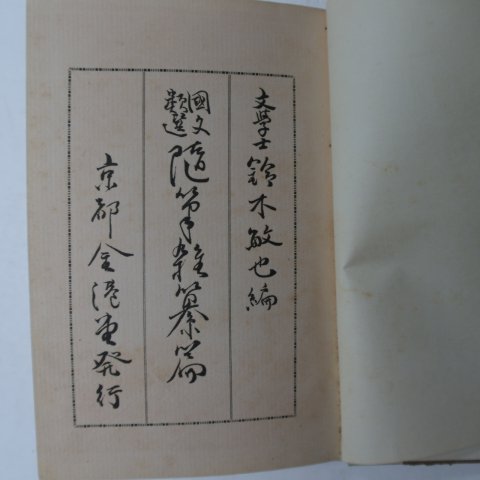 文學士鈴木敏也編
國文
類選
隨筆雜纂篇
京都金港堂発行